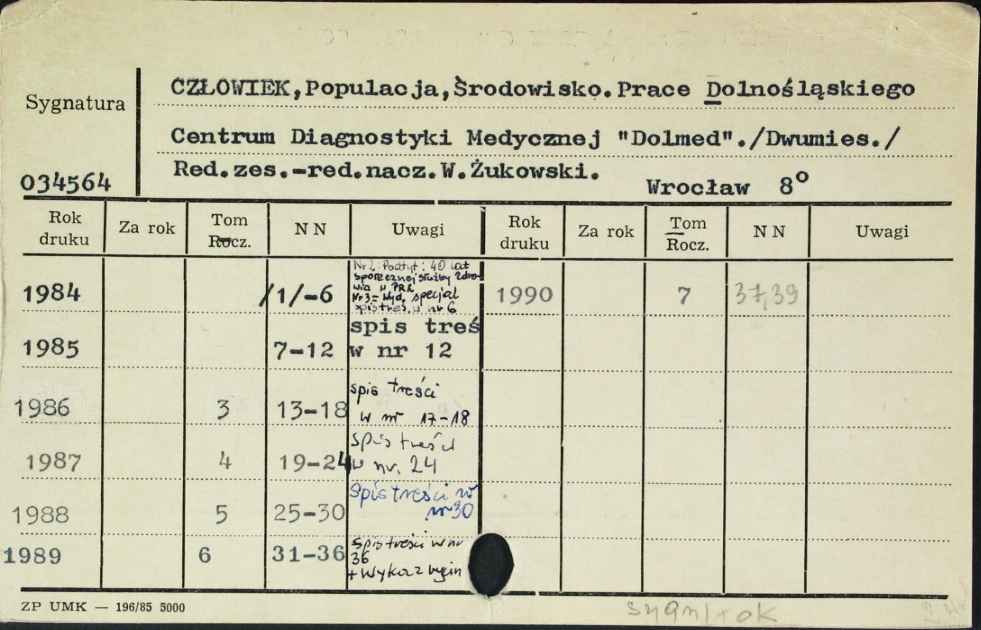 CZŁOWIEK,Populacja,Środowisko.Prace Dolnośląskiego
Sygnatura
Centrum Diagnostyki Medycznej "Dolmed"./Dwumies./
Red.zes.-red.nacz.W.Żukowski.
034564
Wrocław 8°
Rok druku Za rok Tom Rocz. N N Uwagi Rok druku Za rok Tom Rocz. N N Uwagi
Nr 2 Podtyt: 40 lat
społecznej służby zdro
wia w PRL
Nr 3= Wyd. specjal
spis treś. w nr 6
1984 /1/-6 1990 7 37,39
spis treś
1985 7-12 w nr 12
spis treści
1986 3 13-18 w nr 17-18
spis treści
1987 4 19-24 w nr. 24
Spis treści w
1988 5 25-30 nr 30
spis treści w nr
1989 6 31-36 36
+ Wykaz
ZP UMK — 196/85 5000